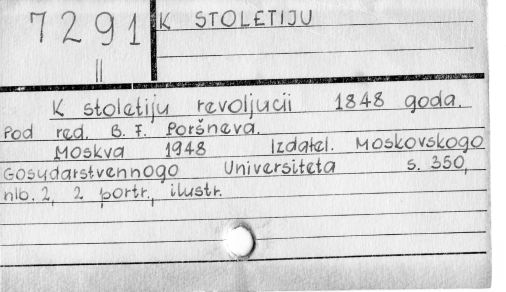 7291 K STOLETIJU
II
K stoletiju revoljucii 1848 goda.
Pod red. B. F. Poršneva.
Moskva 1948 Izdatel. Moskovskogo
Gosudarstvennogo Universiteta s. 350,
nlb. 2, 2 portr., ilustr.